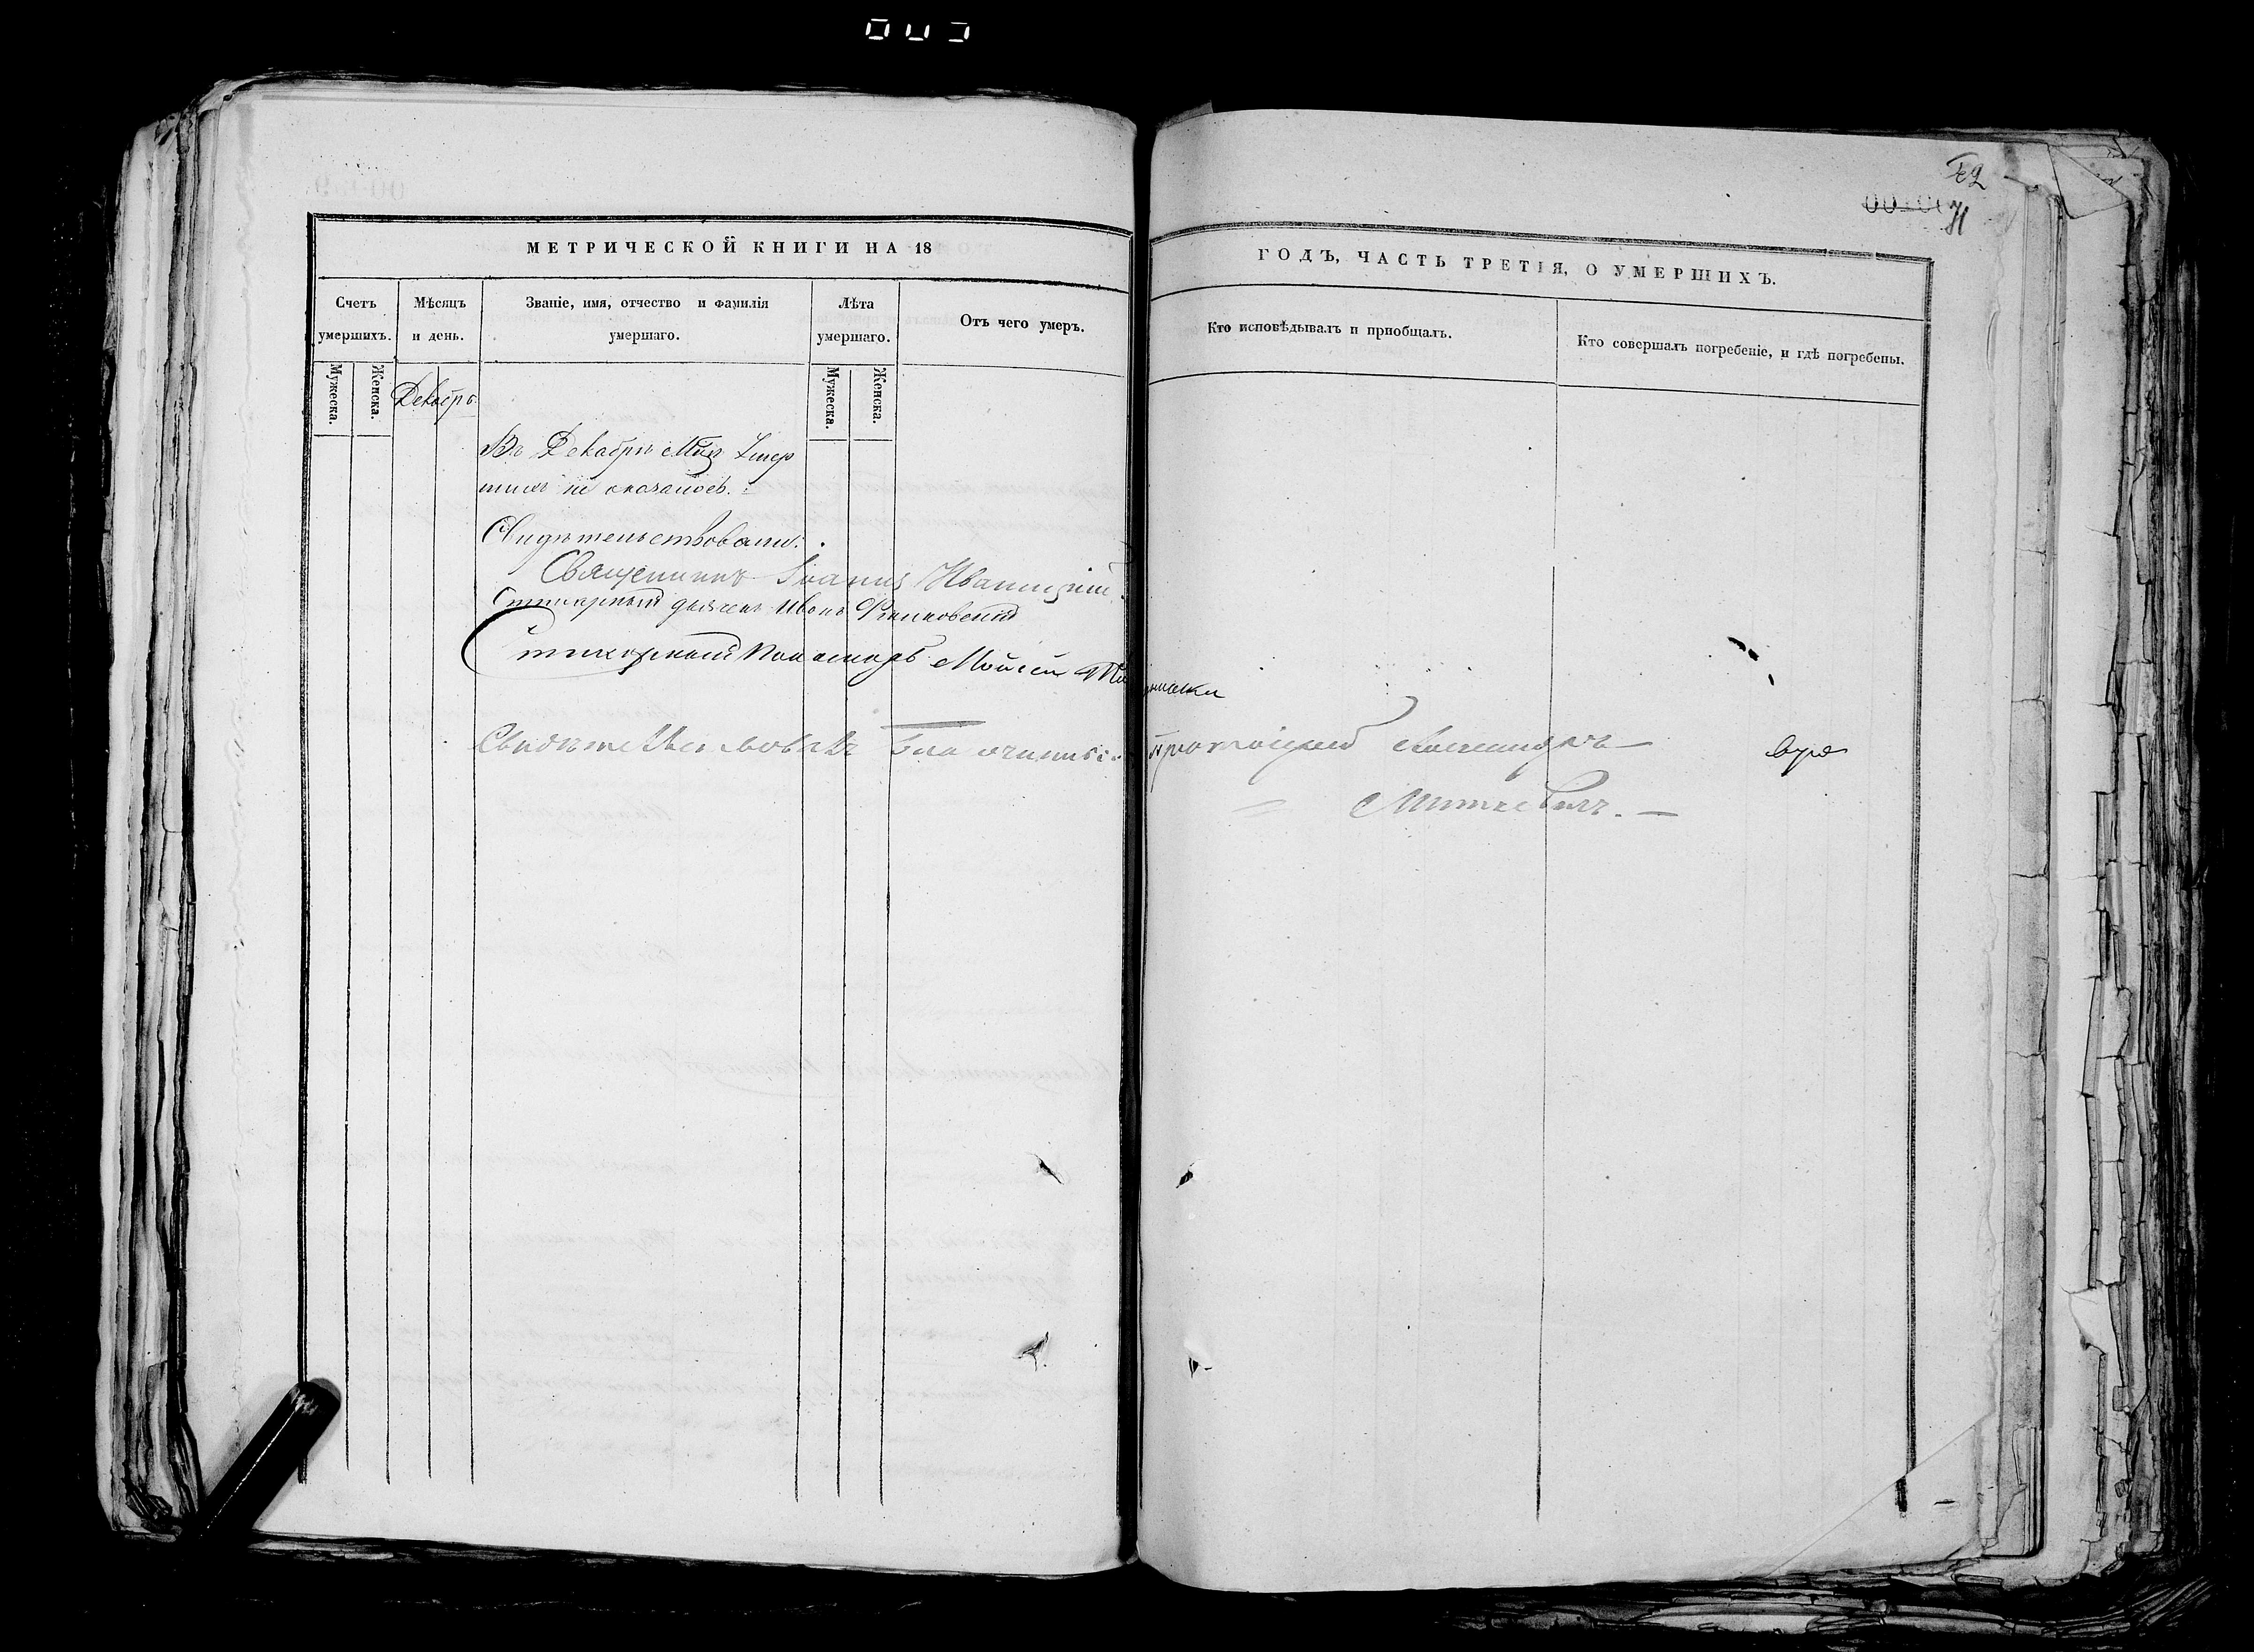 МЕТРИЧЕСКОЙ КНИГИ НА 18
ГОДЪ, ЧАСТЬ ТРЕТІЯ, О УМЕРШИХЪ.
Счетъ умершихъ.
Мѣсяцъ и день.
Званіе, имя, отчество и фамилія умершаго.
Лѣта умершаго.
Отъ чего умеръ.
Кто исповѣдывалъ и пріобщалъ.
Кто совершалъ погребеніе, и гдѣ погребены.
Мужеска.
Женска.
Мужеска.
Женска.
Декабрь
Въ Декабрѣ Мцѣ Умер
шихъ не оказалось.
Свидѣтельствовали:
Священникъ Іоаннъ
Стихарный дьячекъ Иванъ
Стихарный пономарь Мойсей
Свидѣтельствовалъ Благочинный Протоіерей Александръ
Миткевичъ.